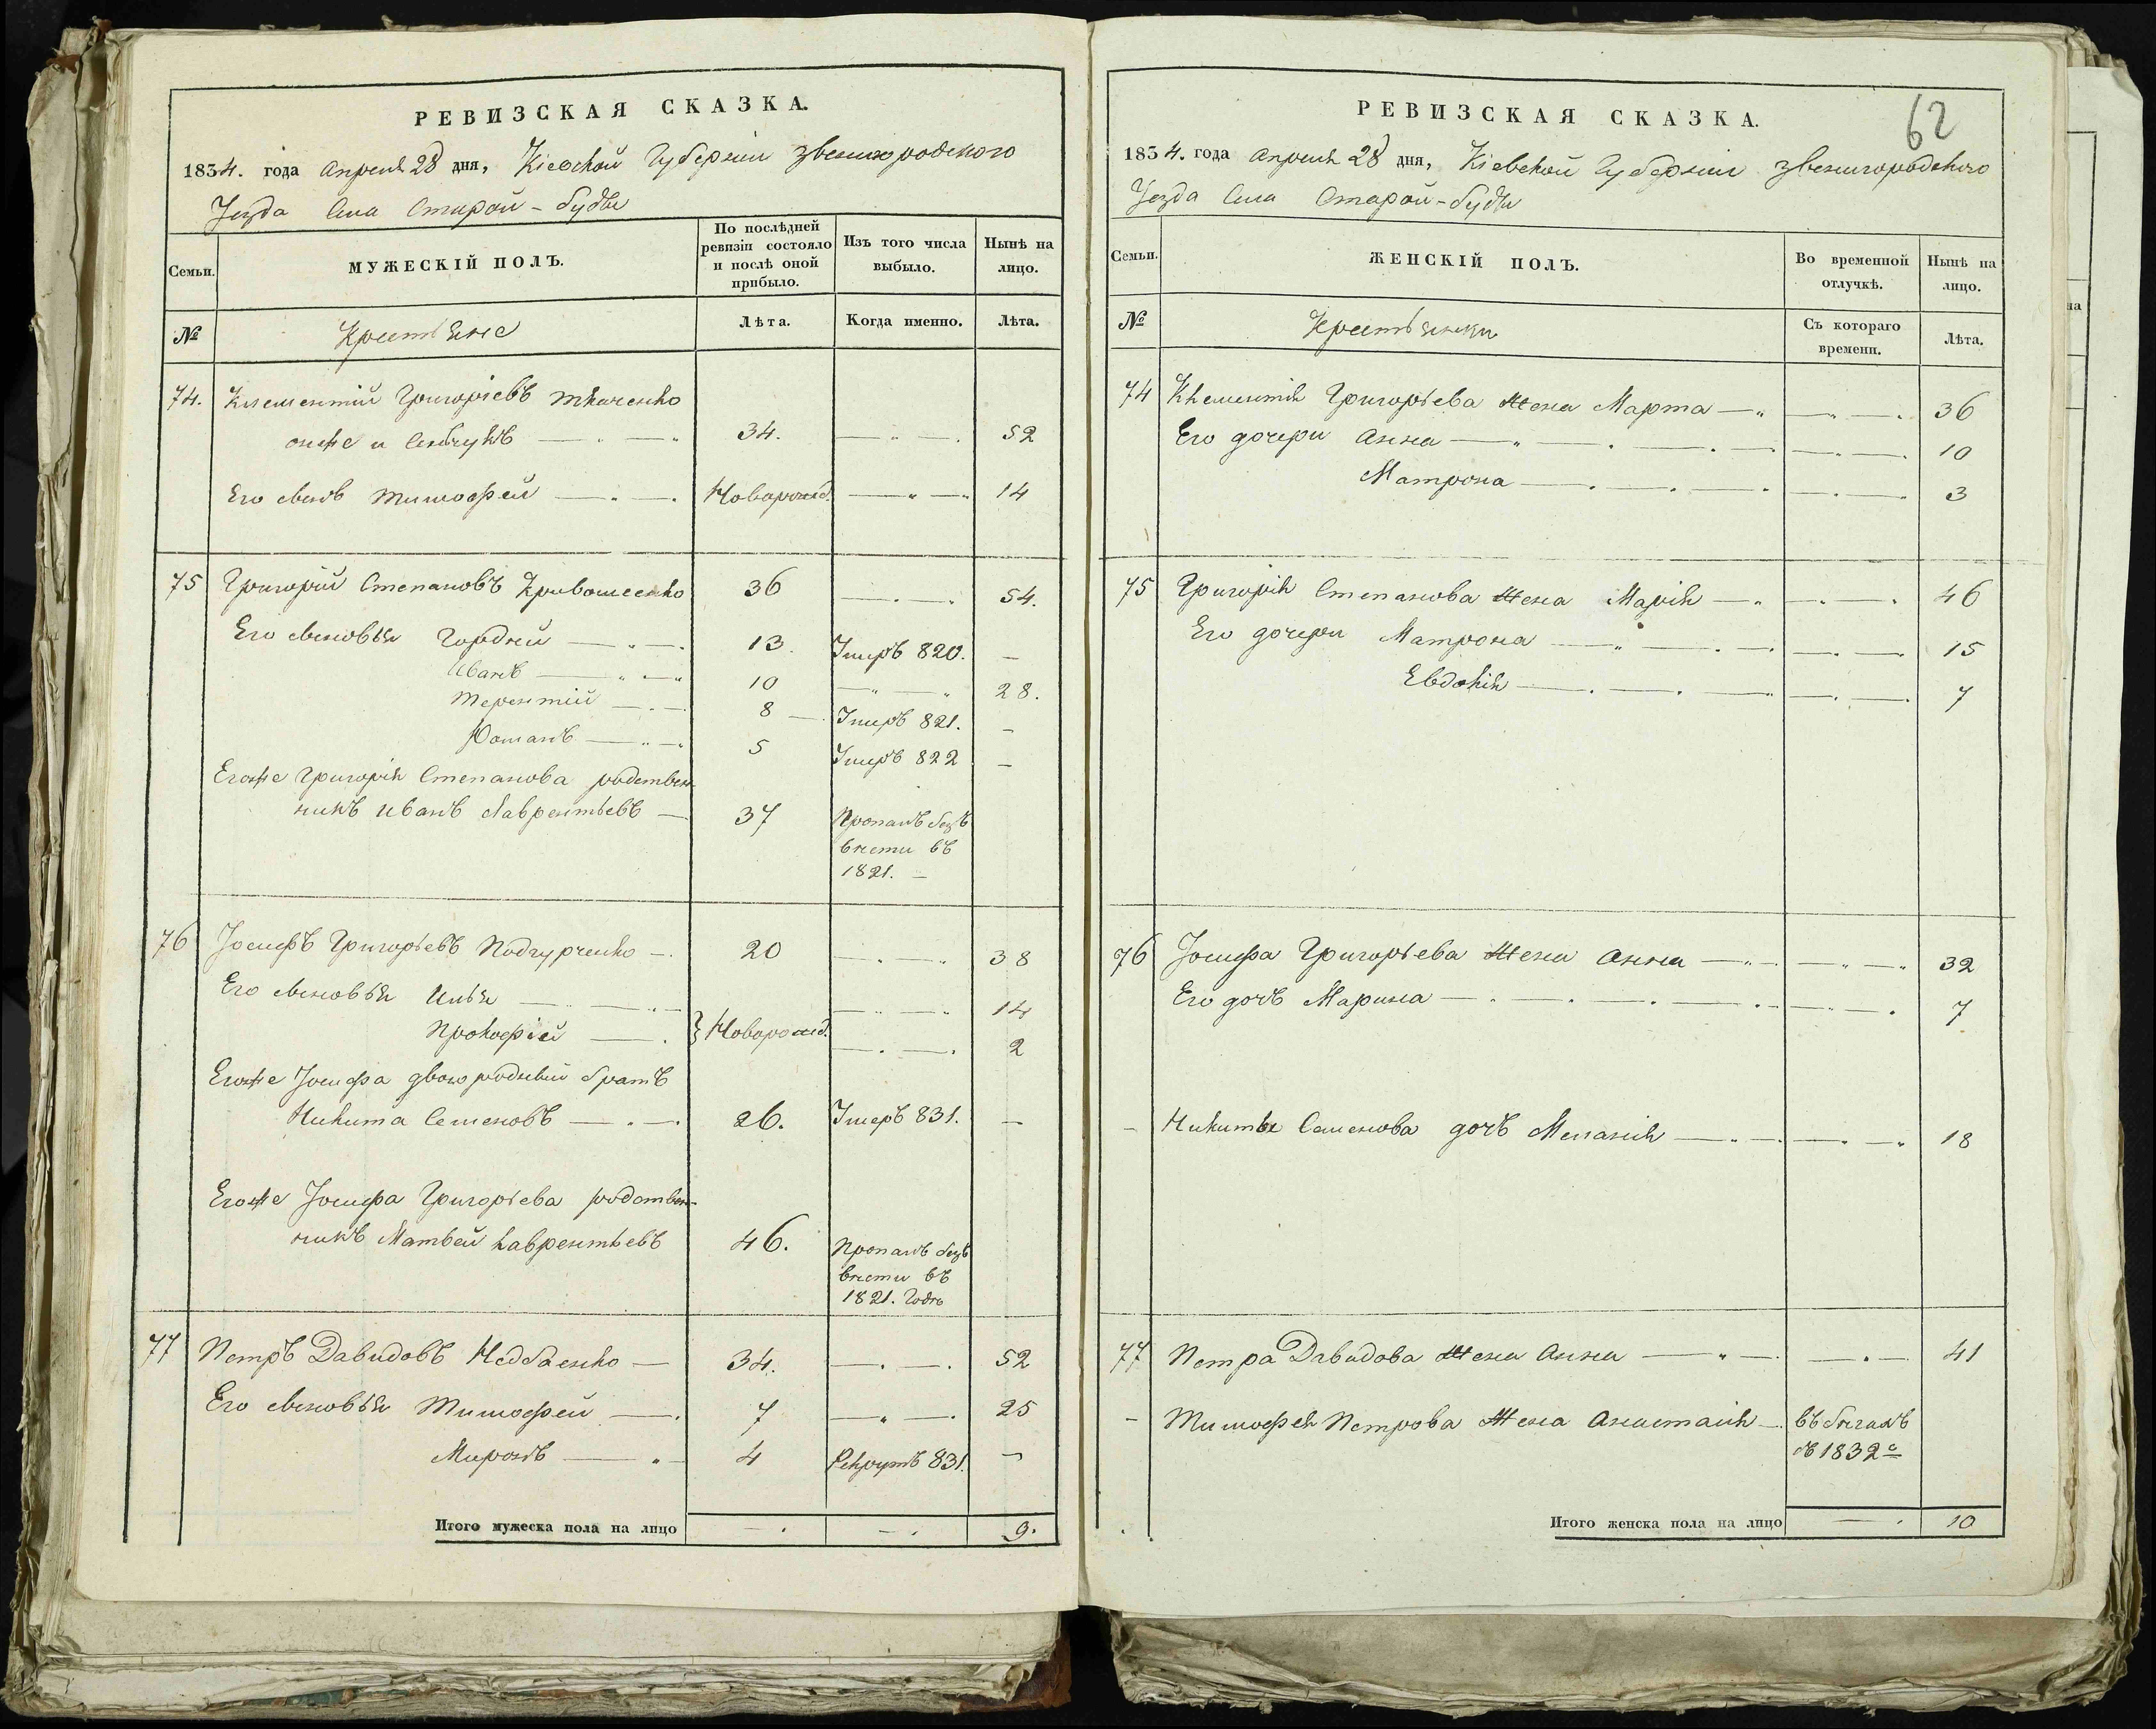 РЕВИЗСКАЯ СКАЗКА.
1834. года Апреля 28 дня, Кіевской Губерніи Звенигородского
Уезда Села Старой-Буды
Семьи.
МУЖЕСКІЙ ПОЛЪ.
По послѣдней ревизіи состояло и послѣ оной прибыло.
Изъ того числа выбыло.
Нынѣ на лицо.
№
Крестьяне
Лѣта.
Когда именно.
Лѣта.
74. Клементий Григорьевъ Ткаченко
онже и Сенчукъ 34. 52
Его сынъ Тимофей Новорожд. 14
75 Григорий Степановъ Кривошеенко 36 54.
Его сыновья Гордей 13. Умеръ 820. —
Иванъ 10 28.
Терентий 8 Умеръ 821. —
Романъ 5 Умеръ 822 —
Егоже Григорія Степанова родствен
никъ Иванъ Лаврентьевъ — 37 Пропалъ безъ
вѣсти въ
1821. —
76 Іосифъ Григорьевъ Подгурченко 20 38
Его сыновья Илья 14
Прокофій } Новорожд. 2
Егоже Іосифа двоюродный братъ
Никита Семеновъ 26. Умеръ 831. —
Егоже Іосифа Григорьева родствен-
никъ Матвей Лаврентьевъ 46. Пропалъ безъ
вѣсти въ
1821. Годѣ
77 Петръ Давидовъ Недбаенко — 34. 52
Его сыновья Тимофей 7 25
Миронъ 4 Рекрутъ 831. —
Итого мужеска пола на лицо 9.
62
РЕВИЗСКАЯ СКАЗКА.
1834. года Апреля 28 дня, Кіевской Губерніи Звенигородского
Уезда Села Старой-Буды
Семьи.
ЖЕНСКІЙ ПОЛЪ.
Во временной отлучкѣ.
Нынѣ на лицо.
№
Крестьянки
Съ котораго времени.
Лѣта.
74 Клементія Григорьева Жена Марта 36
Его дочери Анна 10
Матрона 3
75 Григорія Степанова Жена Марія 46
Его дочери Матрона 15
Евдокія 7
76 Іосифа Григорьева Жена Анна 32
Его дочь Марина 7
— Никиты Семенова дочь Меланія 18
77 Петра Давидова Жена Анна 41
— Тимофея Петрова Жена Анастасія въ бѣгахъ
съ 1832 г
Итого женска пола на лицо 10